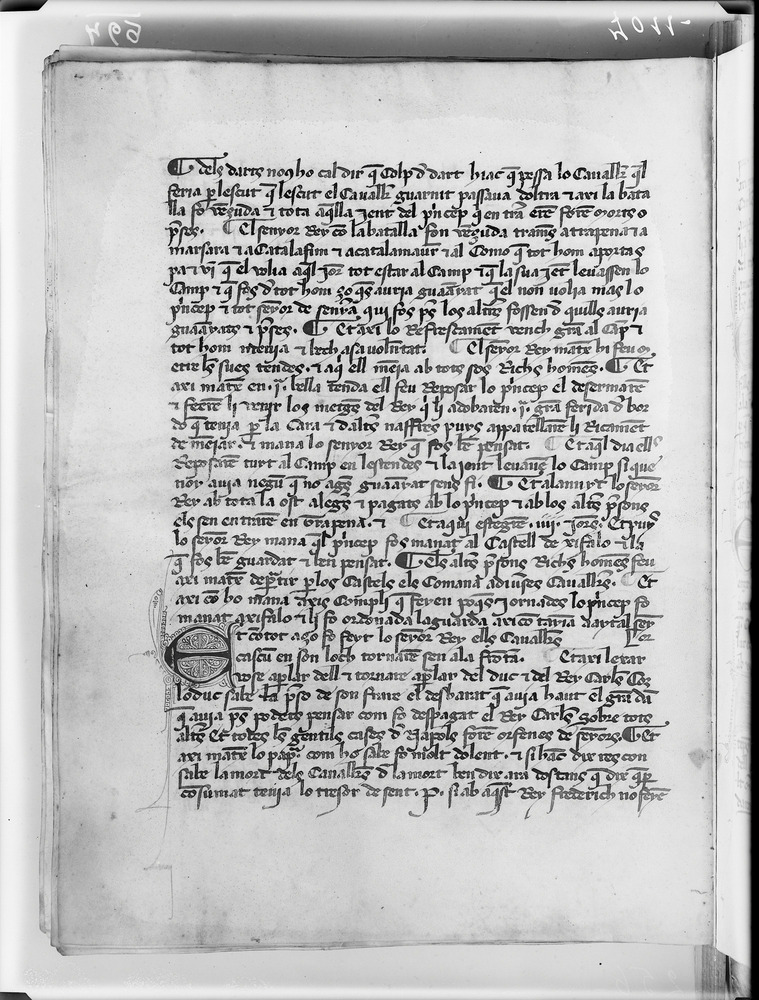 ¶ dels darts nous ho cal dir q̃ Colp d̃ dart hi ac q̃ passa lo Cauall̃r q̃l
feria p̱ lescut q̃ lescut el Cauall̃r guarnit passaua doltra ⁊ axi la bata
lla fo vẽçuda ⁊ tota aq̃lla jent del p̃ncep q̃ en tr̃a erẽ forẽ morts o
p̃ses. ¶ El senyor Rey cõ la batalla fon vẽçuda tramˢ a trapena ⁊ a
marsara ⁊ a Catalafim ⁊ a catalamaur ⁊ al Como q̃ tot hom aportas
pa ⁊ vi q̃ el volia aq̃l jor̃ tot estar al Camp ⁊ q̃ la sua jẽt leuassen lo
Camp ⁊ q̃ fos d̃ tot hom ço q̃s auria guaãyat q̃ el non volia mas lo
p̃ncep ⁊ tot seyor de senyr̃a qui fos p̃s los altr̃s fossen d̃ quills auria
guaãyats ⁊ p̃ses. ¶ Et axi lo Refrescamẽt vench gr̃a al Cãp ⁊
tot hom mẽjia ⁊ bech a sa volũtat. ¶ El seyor Rey matẽ hi feu
etre les sues tendes. ⁊ aq̃ ell mẽja ab tots sos Richs homẽs. ¶ Et
axi matẽ en .j. bella tenda ell feu Reposar lo p̃ncep el desermarẽ
⁊ feerẽ li venir los metges del Rey q̃ li adobaren .j. gr̃a ferida d̃ bor
dó q̃ tenia p̱ la Cara ⁊ daltr̃s naffres puys apparellarẽ li Ricamẽt
de mẽjar. ⁊ mana lo senyor Rey q̃ fos bẽ pensat. ¶ Et aq̃l dia ells
Reposarẽ tuyt al Camp en les tendes ⁊ la jent leuarẽ lo Camp si que
noy auia negũ q̃ no agˢ guaãyat sens fi. ¶ Et al anuyt lo seyor
Rey ab tota la ost alegˢ ⁊ pagats ab lo p̃ncep ⁊ ab los altr̃s p̃sons
els sen entrarẽ en trapena. ⁊ ¶ Et aqui estegrẽ .iiij. jorˢ. Et puys
lo seyor Rey mana q̃l p̃ncep fos manat al Castell de xifalo ⁊ la
q̃ fos bẽ guardat ⁊ ben pensat. ¶ Els altr̃s p̃sons Richs homẽs feu
axi matẽ dep̱tir p̱ los Castels els Comana a diuises Cauall̃rs. ¶ Et
axi cõ ho mana axis Cõmpli q̃ fer en poq̃s Jornades lo p̃ncep fo
manat a xifalo ⁊ li fo ordonada la guarda axi co tayia daytal seyor
Et cõ tot aço fo feyt lo seyor Rey ells Cauall̃rs
cascũ en son loch tornarẽ sen a la frõta. ¶ Et axi lexar
vos e a p̱lar dell ⁊ tornare a p̱lar del duc ⁊ del Rey Carl̃s Cõ
lo duc sabe la p̃so de son frare el desbarat q̃ auia haut el gr̃a dã
q̃ auia p̃s podets pensar com fo despagat el Rey Carl̃s sobre tots
altr̃s Et totes les gentils cases d̃ Napols forẽ orfenes de seyors. ¶ Et
axi matẽ lo papa com ho sabe fo molt dolent. ⁊ si hac dix vos con
sabe la mort dels Cauall̃rs d̃ la mort ben dix ara dos tants q̃ dix q̃ p̱
cõsumat tenia lo tresor de sent .P. si ab aq̃st Rey frederich no feye